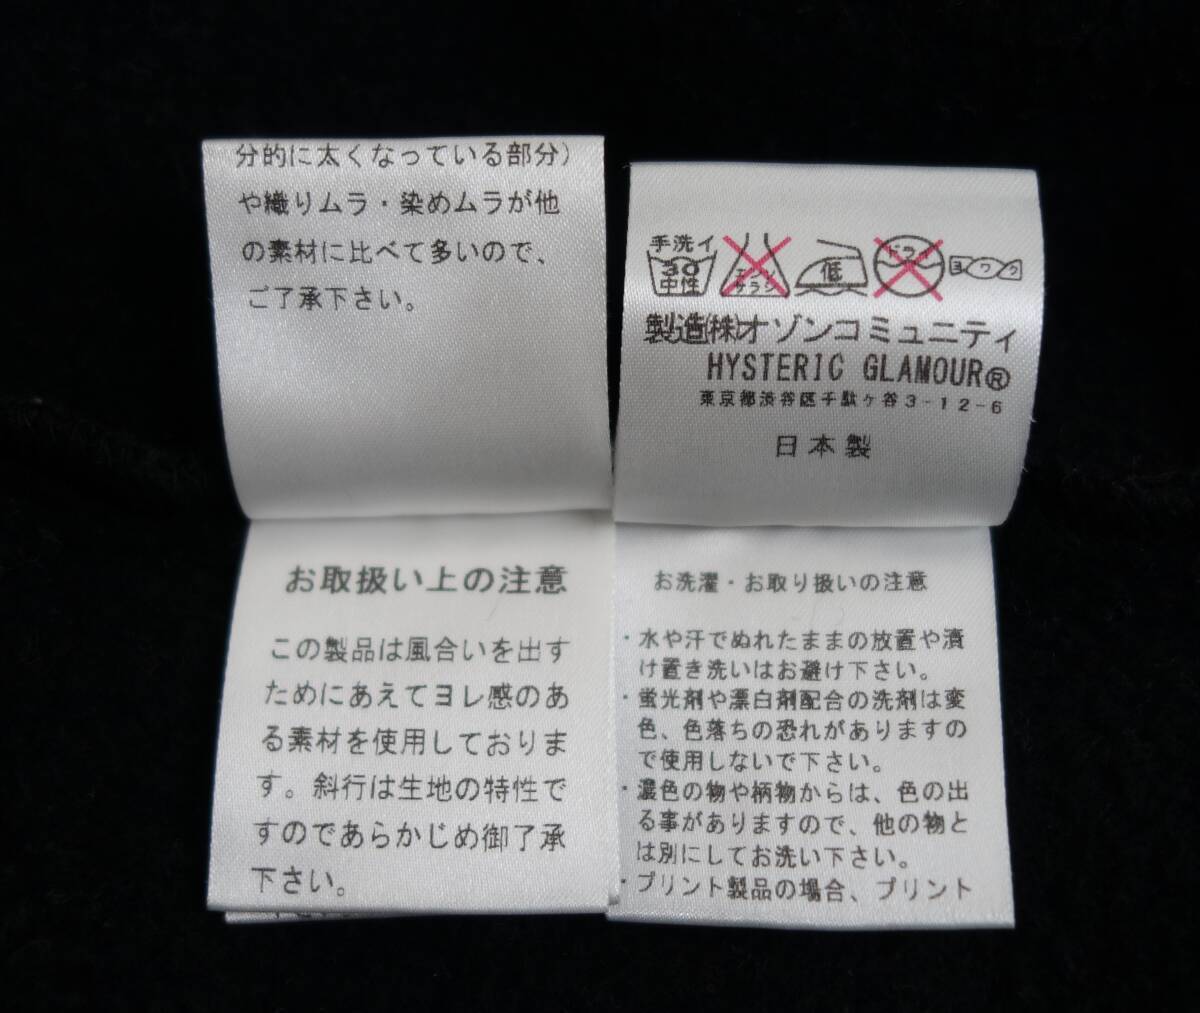 分的に太くなっている部分)
や織りムラ・染めムラが他
の素材に比べて多いので、
ご了承下さい。
手洗イ
30
中性
エンソ
サラシ
低
ドライ
ヨワク
製造(株)オゾンコミュニティ
HYSTERIC GLAMOUR®
東京都渋谷区千駄ヶ谷3-12-6
日本製
お取扱い上の注意
この製品は風合いを出す
ためにあえてヨレ感のあ
る素材を使用しておりま
す。斜行は生地の特性で
すのであらかじめ御了承
下さい。
お洗濯・お取り扱いの注意
・水や汗でぬれたままの放置や漬
け置き洗いはお避け下さい。
・蛍光剤や漂白剤配合の洗剤は変
色、色落ちの恐れがありますの
で使用しないで下さい。
・濃色の物や柄物からは、色の出
る事がありますので、他の物と
は別にしてお洗い下さい。
・プリント製品の場合、プリント